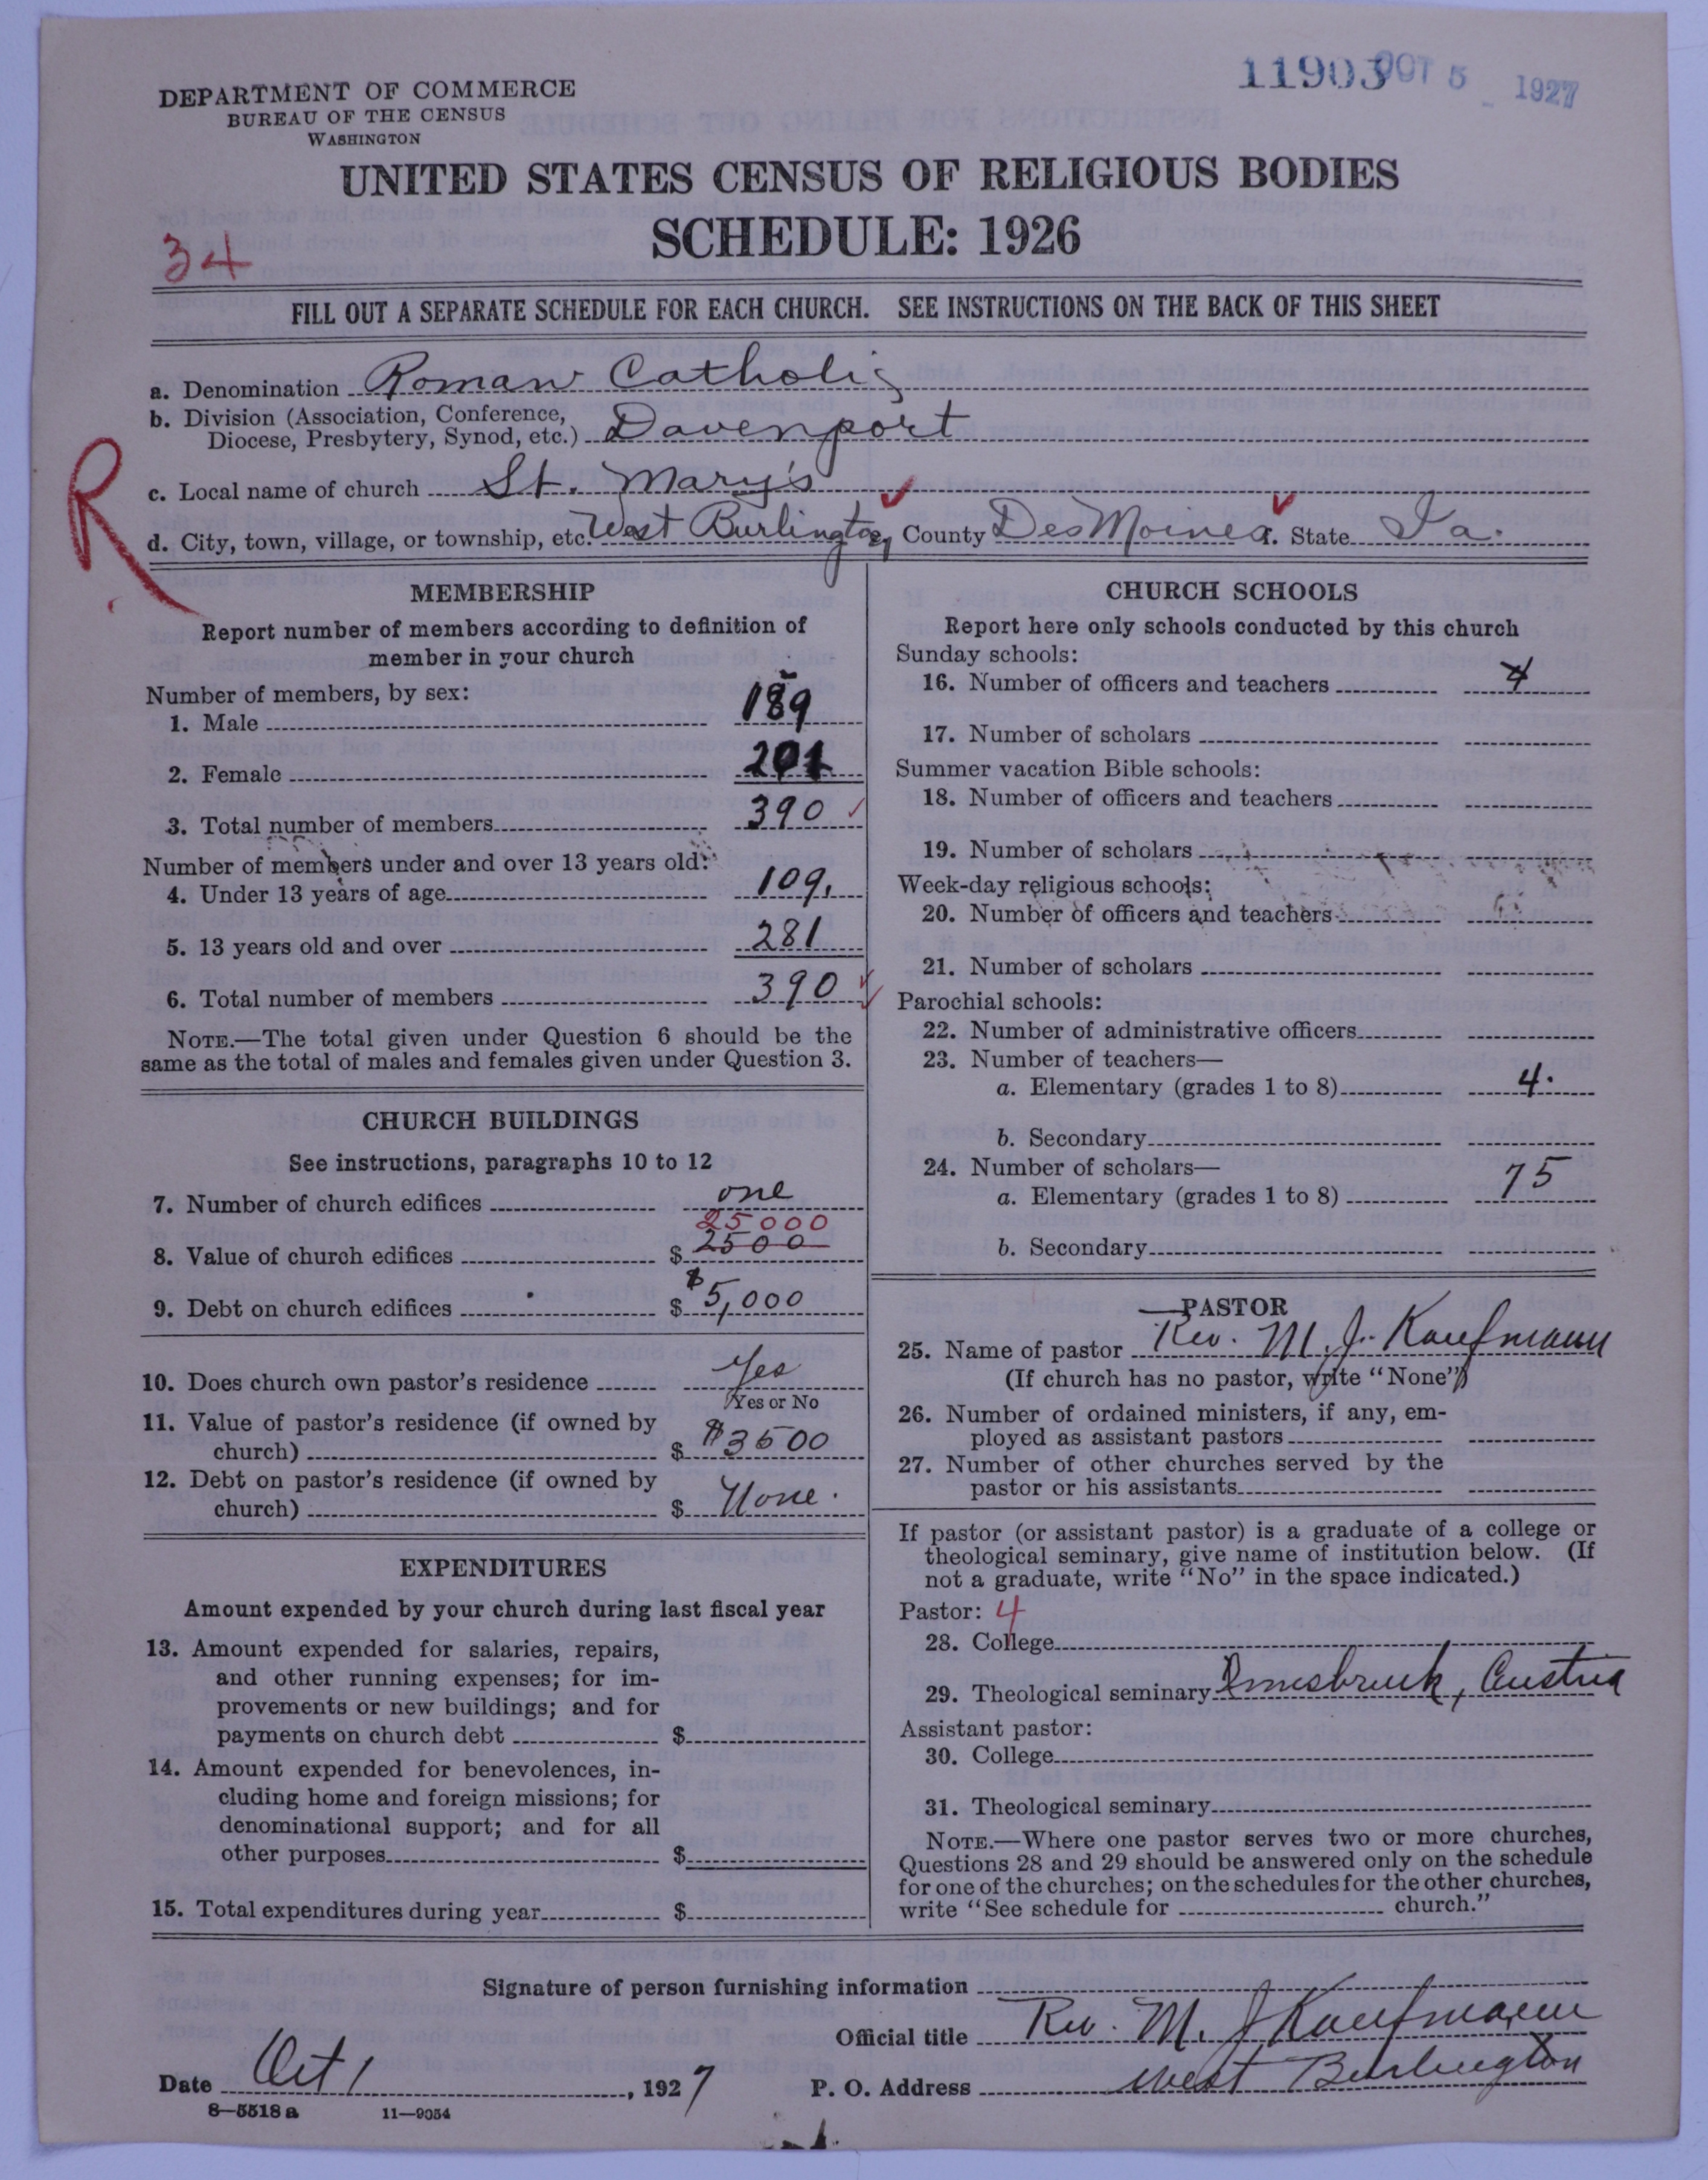 11903 OCT 5 1927
DEPARTMENT OF COMMERCE
BUREAU OF THE CENSUS
WASHINGTON
UNITED STATES CENSUS OF RELIGIOUS BODIES
SCHEDULE: 1926
34
FILL OUT A SEPARATE SCHEDULE FOR EACH CHURCH. SEE INSTRUCTIONS ON THE BACK OF THIS SHEET
a. Denomination Roman Catholic
b. Division (Association, Conference,
Diocese, Presbytery, Synod, etc.) Davenport
R
c. Local name of church St. Mary's
d. City, town, village, or township, etc. West Burlington, County Des Moines. State Ia.
MEMBERSHIP
Report number of members according to definition of
member in your church
Number of members, by sex:
1. Male 189
2. Female 201
3. Total number of members 390 ✓
Number of members under and over 13 years old:
4. Under 13 years of age 109.
5. 13 years old and over 281
6. Total number of members 390 ✓
NOTE.—The total given under Question 6 should be the
same as the total of males and females given under Question 3.
CHURCH BUILDINGS
See instructions, paragraphs 10 to 12
7. Number of church edifices one
25000
8. Value of church edifices $ 2500
9. Debt on church edifices $ $5,000
10. Does church own pastor's residence Yes
Yes or No
11. Value of pastor's residence (if owned by
church) $ $3500
12. Debt on pastor's residence (if owned by
church) $ None.
EXPENDITURES
Amount expended by your church during last fiscal year
13. Amount expended for salaries, repairs,
and other running expenses; for im-
provements or new buildings; and for
payments on church debt $
14. Amount expended for benevolences, in-
cluding home and foreign missions; for
denominational support; and for all
other purposes $
15. Total expenditures during year $
CHURCH SCHOOLS
Report here only schools conducted by this church
Sunday schools:
16. Number of officers and teachers 4
17. Number of scholars
Summer vacation Bible schools:
18. Number of officers and teachers
19. Number of scholars
Week-day religious schools:
20. Number of officers and teachers
21. Number of scholars
Parochial schools:
22. Number of administrative officers
23. Number of teachers—
a. Elementary (grades 1 to 8) 4.
b. Secondary
24. Number of scholars—
a. Elementary (grades 1 to 8) 75
b. Secondary
PASTOR
25. Name of pastor Rev. M. J. Kaufmann
(If church has no pastor, write "None")
26. Number of ordained ministers, if any, em-
ployed as assistant pastors
27. Number of other churches served by the
pastor or his assistants
If pastor (or assistant pastor) is a graduate of a college or
theological seminary, give name of institution below. (If
not a graduate, write "No" in the space indicated.)
Pastor: 4
28. College
29. Theological seminary Innsbruck, Austria
Assistant pastor:
30. College
31. Theological seminary
NOTE.—Where one pastor serves two or more churches,
Questions 28 and 29 should be answered only on the schedule
for one of the churches; on the schedules for the other churches,
write "See schedule for church."
Signature of person furnishing information
Official title Rev. M. J Kaufmann
Date Oct 1, 1927 P. O. Address West Burlington
8—5518 a 11—9054